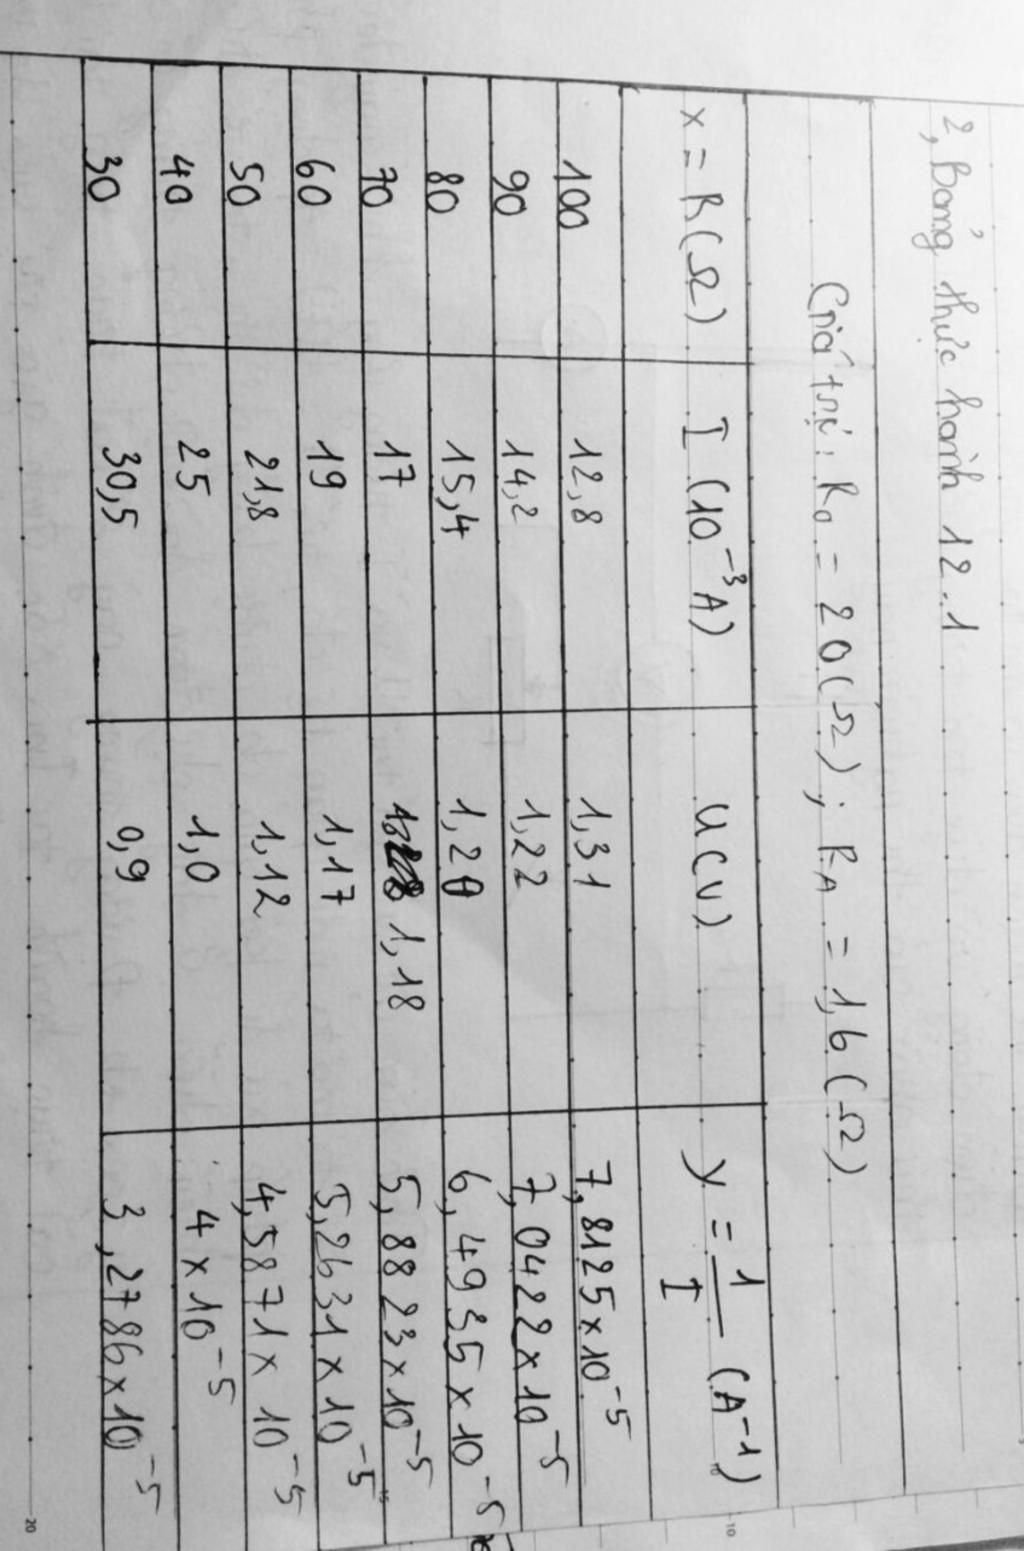 2, Bảng thực hành 12.1
Giá trị: R₀ = 20(Ω); R_A = 1,6(Ω)
x = R(Ω) I (10⁻³A) U(V) y = 1/I (A⁻¹)
100 12,8 1,31 7,8125x10⁻⁵
90 14,2 1,22 7,0422x10⁻⁵
80 15,4 1,20 6,4935x10⁻⁵
70 17 1,18 5,8823x10⁻⁵
60 19 1,17 5,2631x10⁻⁵
50 21,8 1,12 4,5871x10⁻⁵
40 25 1,0 4x10⁻⁵
30 30,5 0,9 3,2786x10⁻⁵
10
20